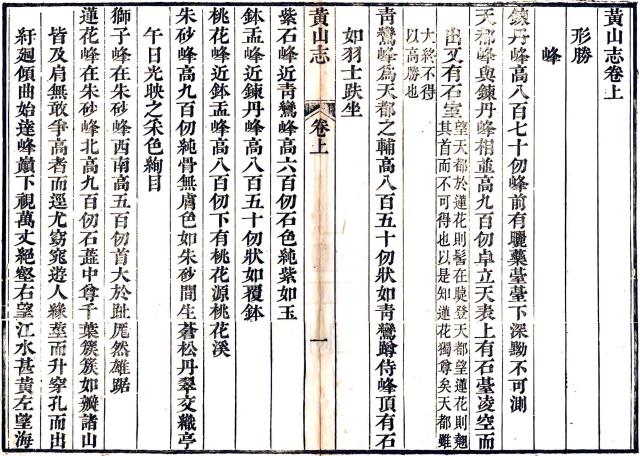 黃山志卷上
形勝
峰
鍊丹峰高八百七十仞峰前有曬藥臺臺下深黝不可測
天都峰與鍊丹峰相並高九百仞卓立天表上有石臺凌空而
出又有石室望天都於蓮花則髻在髮登天都望蓮花則翹
其首而不可得也以是知蓮花獨尊矣天都雖
大終不得
以高勝也
青鸞峰爲天都之輔高八百五十仞狀如青鸞蹲侍峰頂有石
如羽士趺坐
黃山志 卷上 一
紫石峰近青鸞峰高六百仞石色純紫如玉
鉢盂峰近鍊丹峰高八百五十仞狀如覆鉢
桃花峰近鉢盂峰高八百仞下有桃花源桃花溪
朱砂峰高九百仞純骨無膚色如朱砂間生蒼松丹翠交織亭
午日光映之采色絢目
獅子峰在朱砂峰西南高五百仞首大於趾厖然雄踞
蓮花峰在朱砂峰北高九百仞石蕋中尊千葉簇簇如瓣諸山
皆及肩無敢爭高者而逕尤窈窕遊人緣壑而升穿孔而出
紆廻傾曲始達峰巔下視萬丈絕壑右望江水甚黃左望海